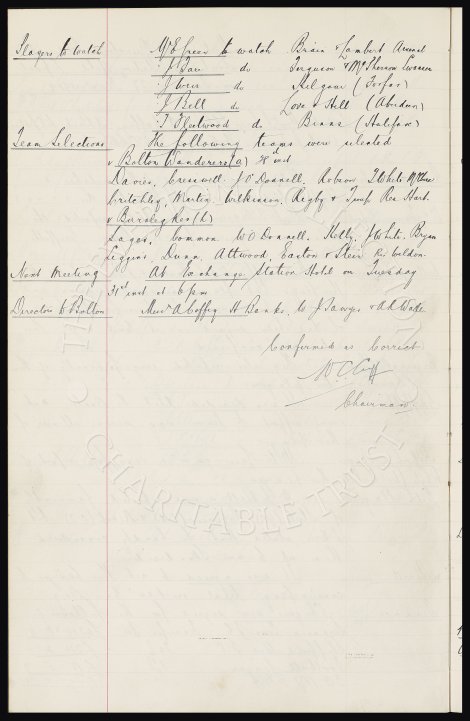 Players to watch Mr E Green to watch Brain & Lambert
" J Fare do Ferguson & McPherson
" J Weir do Kilgour (Forfar)
" J Bell do Love & Hill (Aberdeen)
" T Fleetwood do Binns (Halifax)
Team Selections The following teams were selected
v Bolton Wanderers (a) 28th inst
Davies, Cresswell J O'Donnell, Robson T White
Critchley, Martin, Wilkinson, Rigby & Res Hart.
v Burnley Res (h)
Sagar, Common W O'Donnell. Kelly, J White. Bryan
Liggins, Dunn. Attwood, Easton & Stein Res Weldon.
Next Meeting At Exchange Station Hotel on Tuesday
31st inst at 6 pm
Directors to Bolton Messrs A Coffey H Banks, W J Sawyer & A Wade
Confirmed as Correct
W C Cuff
Chairman.
CHARITABLE TRUST